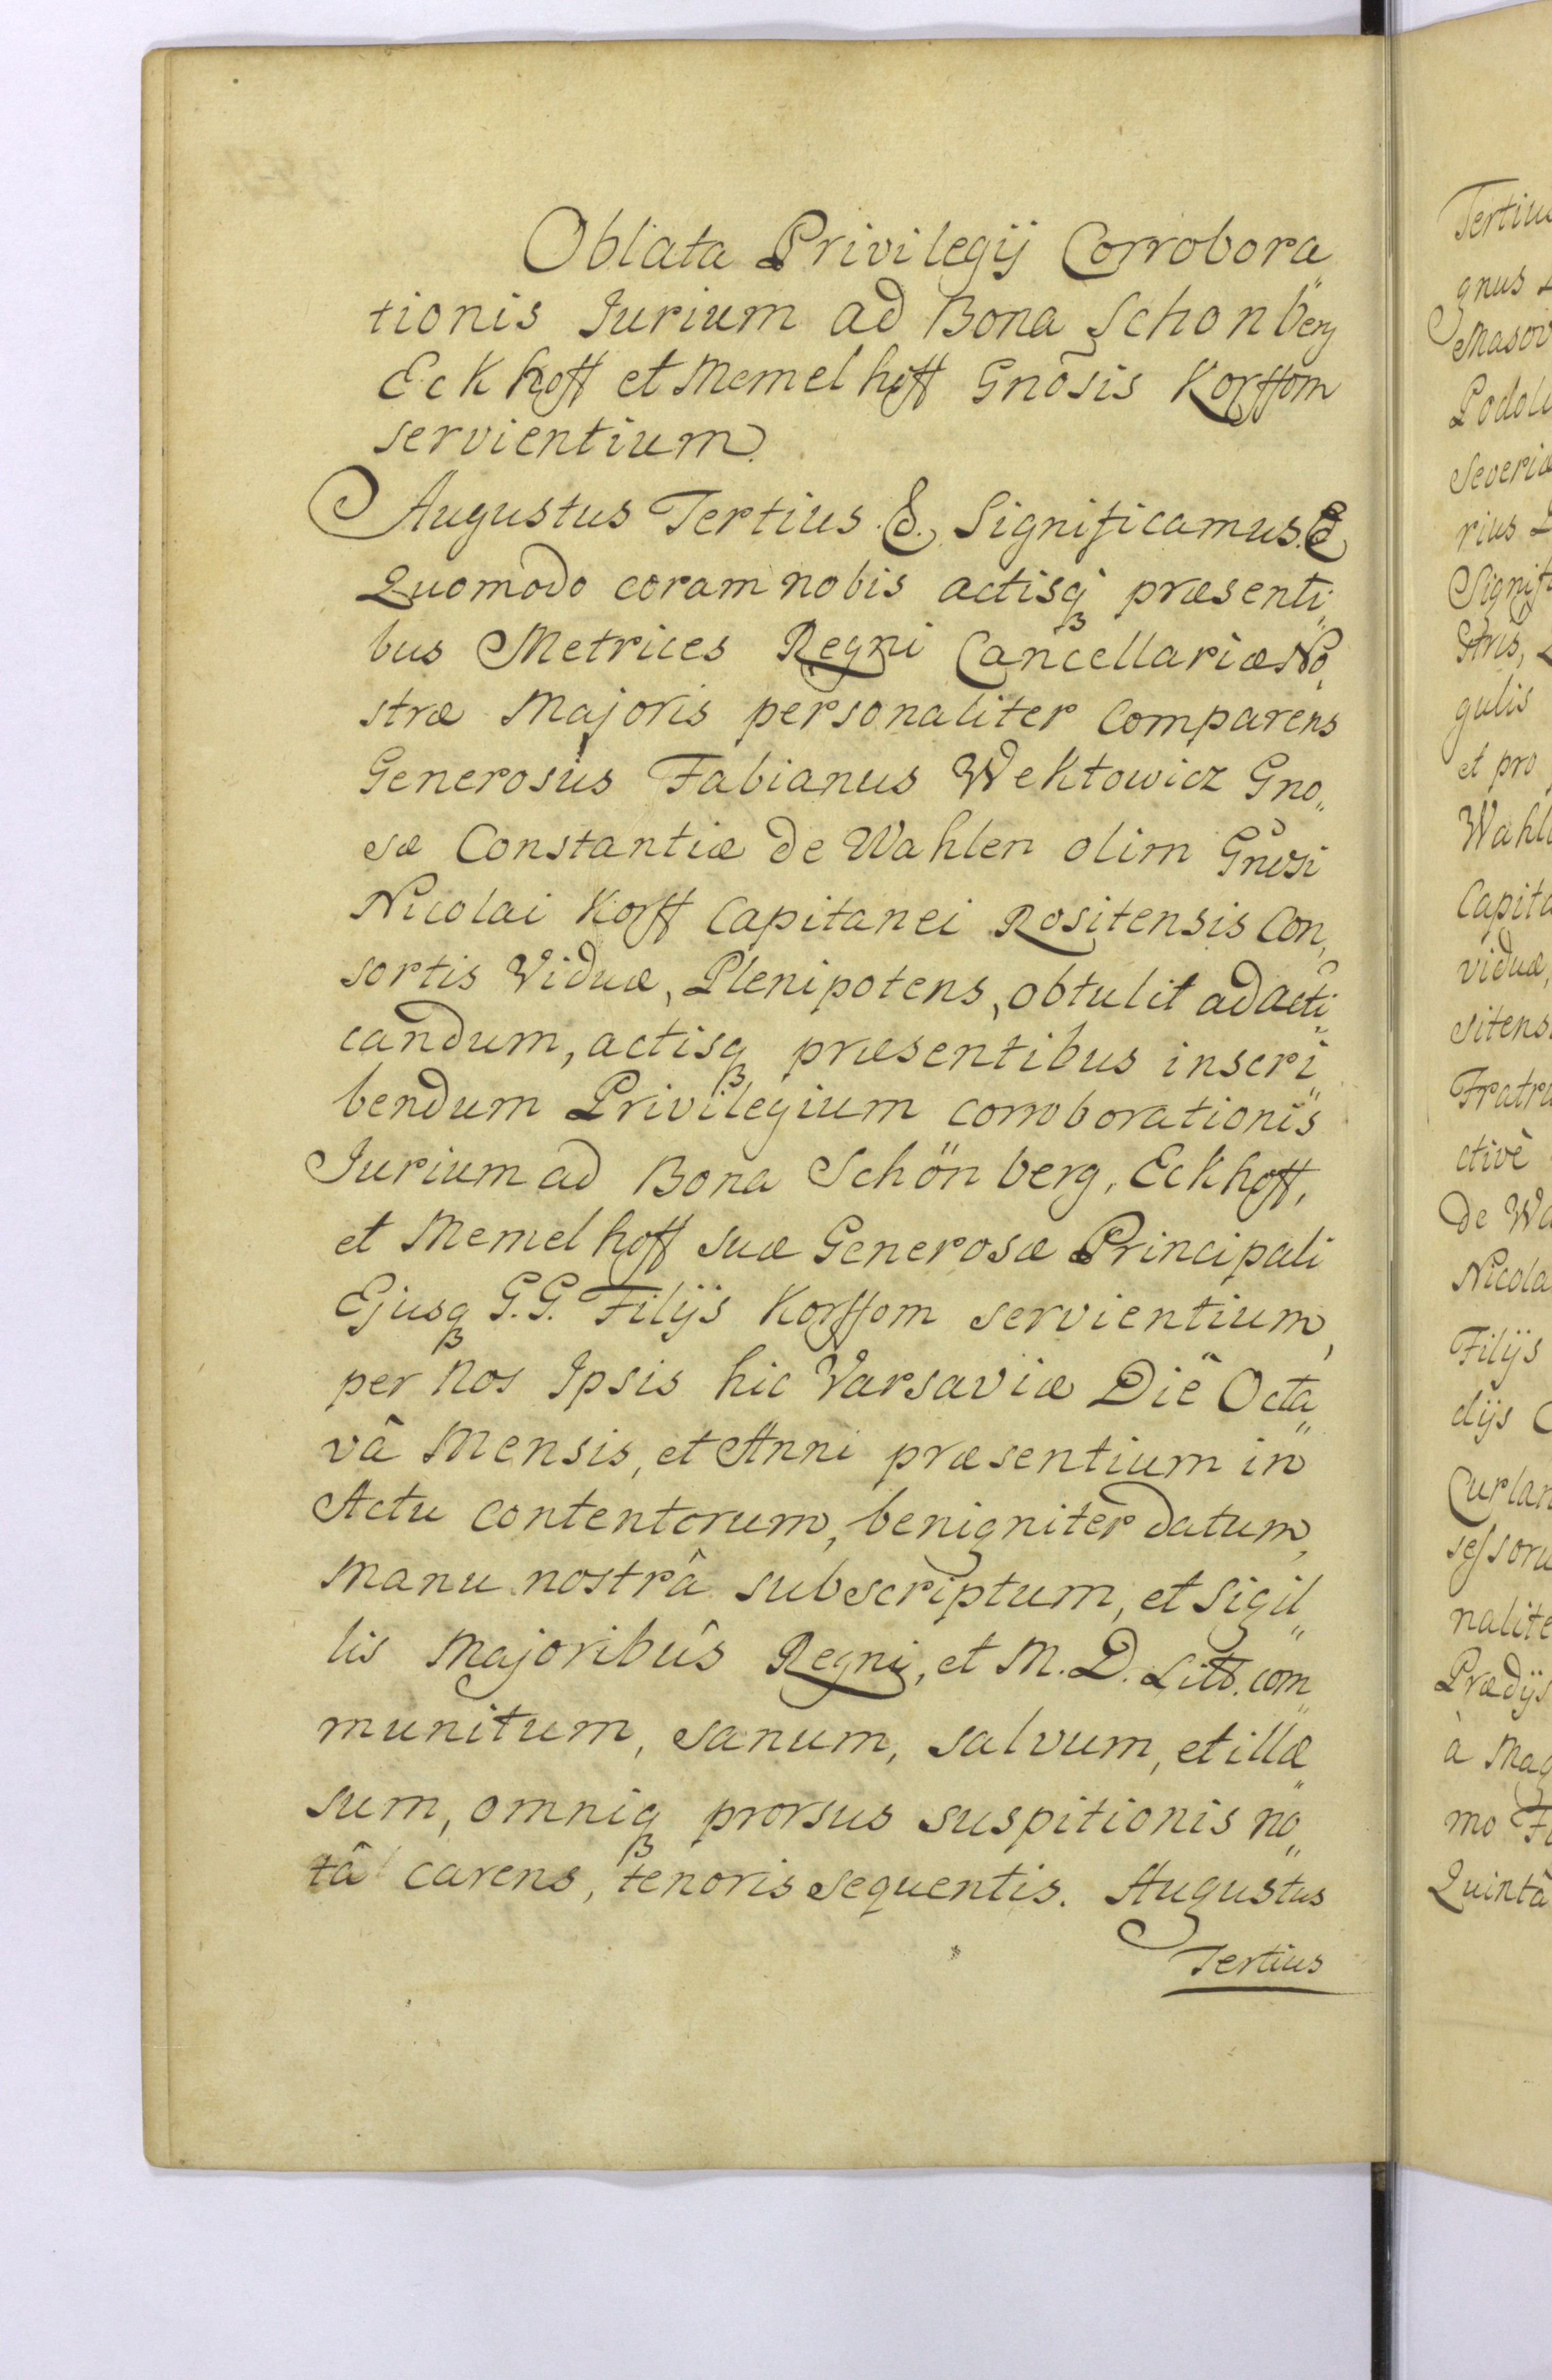 Oblata Privilegij Corrobora„
tionis Jurium ad Bona Schonberg
Eckhoff et Memelhoff Gnosis Korffom
servientium.
Augustus Tertius &. Significamus. &
Quomodo coram nobis actisq₃ præsenti„
bus Metrices Regni Cancellariæ No„
stræ Majoris personaliter comparens
Generosus Fabianus Wektowicz Gno„
sæ Constantiæ de Wahlen olim Gnosi
Nicolai Korff Capitanei Rositensis Con„
sortis Viduæ, Plenipotens, obtulit ad acti„
candum, actisq₃ præsentibus inscri„
bendum Privilegium corroborationis
Jurium ad Bona Schönberg, Eckhoff,
et Memelhoff suæ Generosæ Principali
Ejusq₃ G.G. Filijs Korffom servientium,
per Nos Ipsis hic Varsaviæ Diê Octa„
vâ Mensis, et Anni præsentium in
Actu contentorum, benigniter datum,
Manu nostrâ subscriptum, et Sigil„
lis Majoribûs Regni, et M. D. Litt. com„
munitum, sanum, salvum, et illæ„
sum, omniq₃ prorsus suspitionis no„
tâ carens, tenoris sequentis. Augustus
Tertius
Tertiu
gnus
Masov
Podoli
Severiæ
rius
Signifi
Stris,
gulis
et pro
Wahl
Capita
viduæ,
sitens
Fratru
ctivè
de Wa
Nicola
Filijs
dijs
Curlan
sessoru
nalite
Prædijs
à Mag
mo
Quintâ